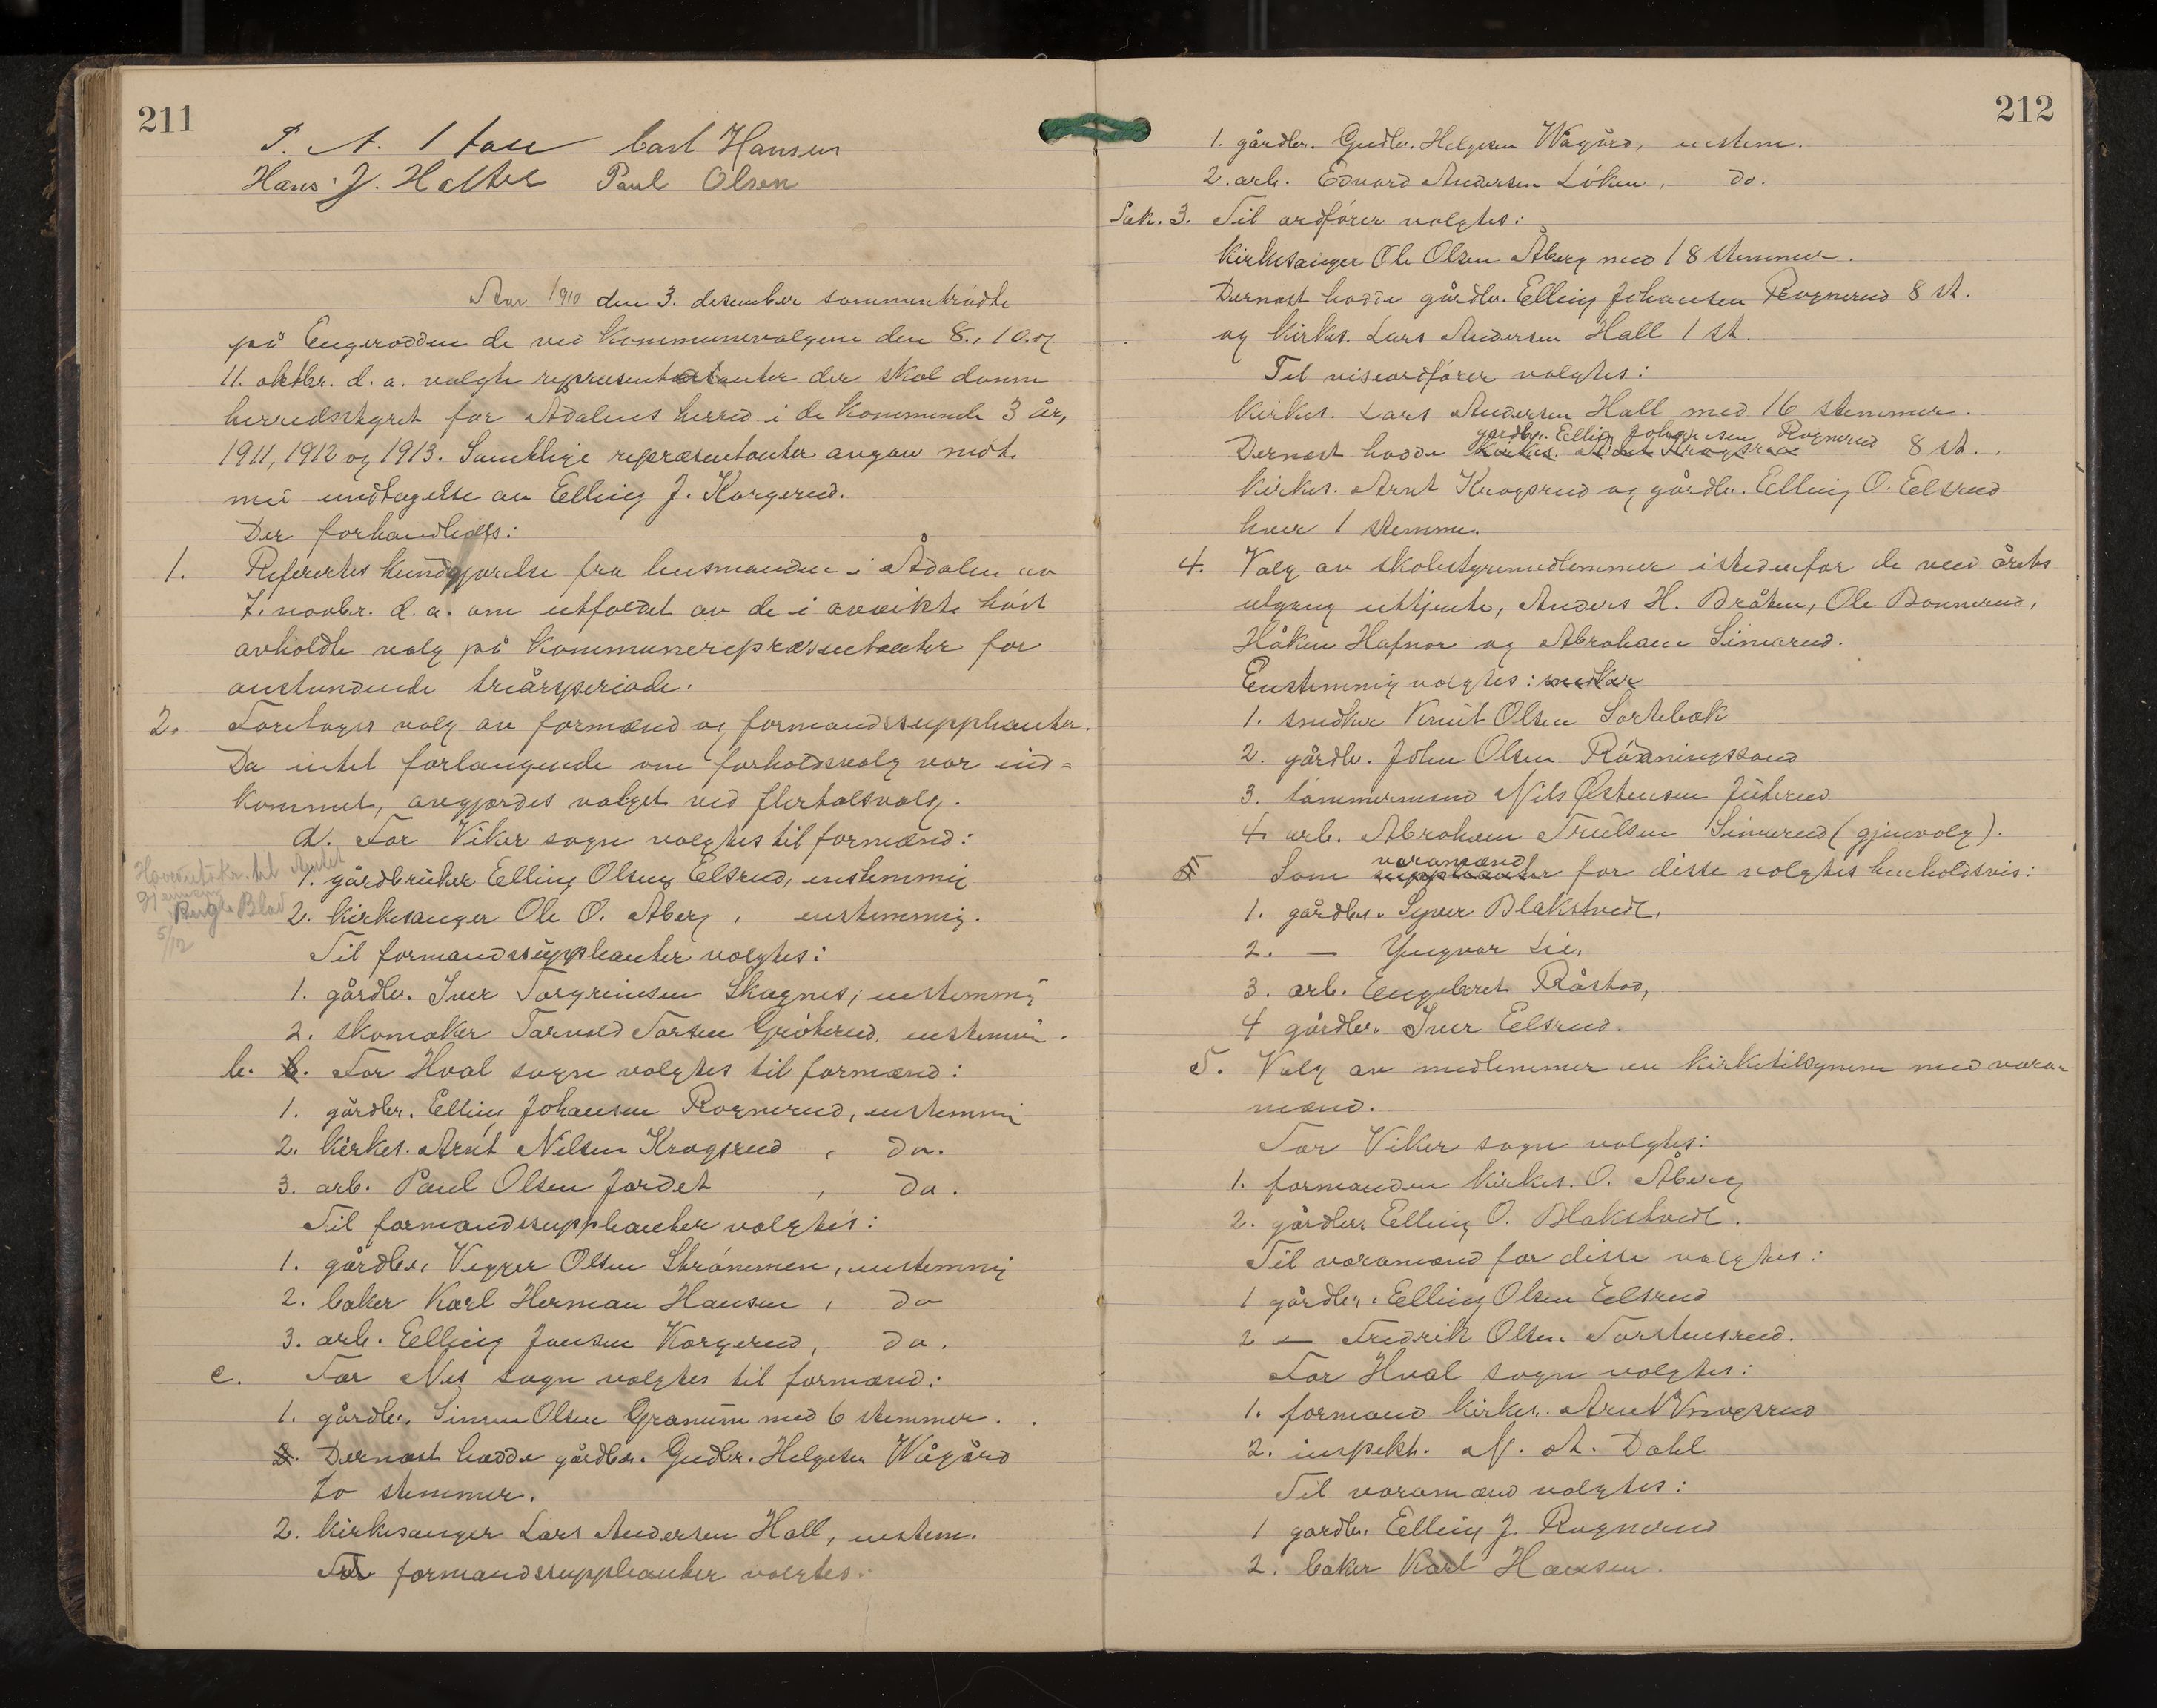 211
Carl Hansen
Hans J. Halter Paul Olsen
Aar 1910 den 3. desember sammentrådte
på Engerodden de ved kommunevalgene den 8., 10. og
11. oktbr. d. a. valgte repræsentanter der skal danne
herredstyret for Ådalens herred i de kommende 3 år,
1911, 1912 og 1913. Samtlige repræsentanter avgav møte
med undtagelse av Elling J. Korgerud.
Der forhandledes:
1. Refertes kundgjørelse fra lensmanden i Ådalen av
7. novbr. d. a. om utfaldet av de i avvikte høst
avholdte valg på kommunerepræsentanter for
anstundende treårsperiode.
2. Foretages valg av formænd og formandssuppleanter.
Da intet forlangende om forholdsvalg var ind-
kommet, avgjordes valget ved flertalsvalg.
a. For Viker sogn valgtes til formænd:
1. gårdbruker Elling Olsen Elsrud, enstemmig
2. kirkesanger Ole O. Aberg, enstemmig.
Ringe. Blad
5/12
Til formandssuppleanter valgtes:
1. gårdbr. Iver Torgrimsen Skagnes, enstemmi
2. skomaker Tarald Larsen Grøterud, enstemmi.
b. b. For Hval sogn valgtes til formænd:
1. gårdbr. Elling Johansen Rognerud, enstemmi
2. kirkes. Arnt Nilsen Krogsrud, do.
3. arb. Paul Olsen Jordet, do.
Til formandssuppleanter valgtes:
1. gårdbr. Vegger Olsen Strømmen, enstemmig
2. baker Karl Herman Hansen, do
3. arb. Elling Jonsen Korgerud, do.
c. For Nes sogn valgtes til formænd:
1. gårdbr. Simen Olsen Granum med 6 stemmer.
2. Dernæst hadde gårdbr. Gudbr. Helgesen Wågård
to stemmer.
2. kirkesanger Lars Andersen Hall, enstem.
Til formandssuppleanter valgtes:
212
1. gårdbr. Gudbr. Helgesen Wågård, enstem.
2. arb. Edvard Andersen Løken, do.
Sak. 3. Til ordfører valgtes:
Kirkesanger Ole Olsen Åberg med 18 stemmer.
Dernæst hadde gårdbr. Elling Johansen Rognerud 8 st.
og kirkes. Lars Andersen Hall 1 st.
Til viseordfører valgtes:
Kirkes. Lars Andersen Hall med 16 stemmer.
gårdbr. Elling Johansen Rognerud
Dernæst hadde kirkes. Arnt Krogsrud 8 st.,
kirkes. Arnt Krogsrud og gårdbr. Elling O. Elsrud
hver 1 stemme.
4. Valg av skolestyremedlemmer istedenfor de ved årets
utgang uttjente, Anders H. Bråten, Ole Bonnerud,
Håken Hafnor og Abraham Simerud.
Enstemmig valgtes: snedker
1. snedker Knut Olsen Sortebæk
2. gårdbr. John Olsen Rødningssand
3. tømmermand Nils Østensen Juterud
4. arb. Abraham Trulsen Simerud (gjenvalg).
varamænd
5 Som suppleanter for disse valgtes henholdsvis:
1. gårdbr. Syver Blakstvedt,
2. — Yngvar Lie,
3. arb. Engebret Råstad,
4 gårdbr. Iver Elsrud.
5. Valg av medlemmer av kirketilsynene med vara-
mænd.
For Viker sogn valgtes:
1. formanden kirkes. O. Åberg
2. gårdbr. Elling O. Blakstvedt.
Til varamænd for disse valgtes:
1 gårdbr. Elling Olsen Elsrud
2 — Fredrik Olsen Torstensrud.
For Hval sogn valgtes:
1. formand kirkes. Arnt Krogsrud
2. inspekt. M. A. Dahl
Til varamænd valgtes:
1 gårdbr. Elling J. Rognerud
2. baker Karl Hansen.